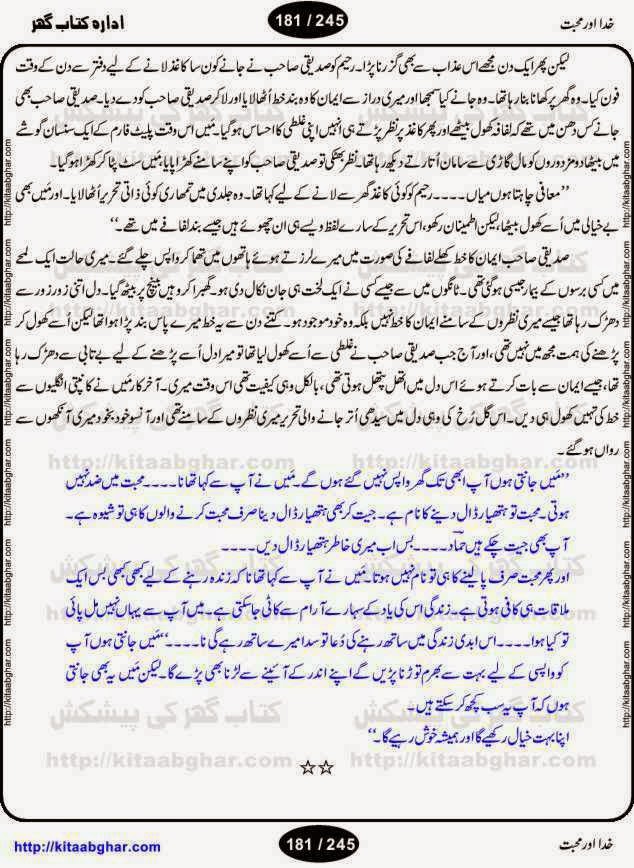 خدا اور محبت
181 / 245
ادارہ کتاب گھر
لیکن پھر ایک دن مجھے اس عذاب سے بھی گزرنا پڑا۔ رحیم کو صدیقی صاحب نے جانے کون سا کاغذ لانے کے لیے دفتر سے دن کے وقت
فون کیا۔ وہ گھر پر کھانا بنا رہا تھا۔ وہ جانے کیا سمجھا اور میری دراز سے ایمان کا وہ بند خط اُٹھا لایا اور لا کر صدیقی صاحب کو دے دیا۔ صدیقی صاحب بھی
جانے کس دھن میں تھے کہ لفافہ کھول بیٹھے اور پھر کاغذ پر نظر پڑتے ہی انہیں اپنی غلطی کا احساس ہو گیا۔ مَیں اس وقت پلیٹ فارم کے ایک سنسان گوشے
میں بیٹھا دو مزدوروں کو مال گاڑی سے سامان اُتارتے دیکھ رہا تھا۔ نظر بھٹکی تو صدیقی صاحب کو اپنے سامنے کھڑا پایا، مَیں سٹ پٹا کر کھڑا ہو گیا۔
’’معافی چاہتا ہوں میاں۔۔۔۔ رحیم کو کوئی کاغذ گھر سے لانے کے لیے کہا تھا۔ وہ جلدی میں تمھاری کوئی ذاتی تحریر اُٹھا لایا۔ اور مَیں بھی
بے خیالی میں اُسے کھول بیٹھا، لیکن اطمینان رکھو، اس تحریر کے سارے لفظ ویسے ہی ان چھوئے ہیں جیسے بند لفافے میں تھے۔‘‘
صدیقی صاحب ایمان کا خط کھلے لفافے کی صورت میں میرے لرزتے ہوئے ہاتھوں میں تھما کر واپس چلے گئے۔ میری حالت ایک لمحے
میں کسی برسوں کے بیمار جیسی ہو گئی تھی۔ ٹانگوں میں سے جیسے کسی نے ایک لخت ہی جان نکال دی ہو۔ گھبرا کر وہیں بینچ پر بیٹھ گیا۔ دل اتنی زور زور سے
دھڑک رہا تھا جیسے میری نظروں کے سامنے ایمان کا خط نہیں بلکہ وہ خود موجود ہو۔ کتنے دن سے یہ خط میرے پاس بند پڑا ہوا تھا لیکن اُسے کھول کر
پڑھنے کی ہمت مجھ میں نہیں تھی، اور آج جب صدیقی صاحب نے غلطی سے اُسے کھول لیا تھا تو میرا دل اُسے پڑھنے کے لیے بے تابی سے دھڑک رہا
تھا، جیسے ایمان سے بات کرتے ہوئے اس دل میں اتھل پتھل ہوتی تھی، بالکل وہی کیفیت تھی اس وقت میری۔ آخر کار مَیں نے کانپتی انگلیوں سے
خط کی تہیں کھول ہی دیں۔ اس گل رُخ کی وہی دل میں سیدھی اُتر جانے والی تحریر میری نظروں کے سامنے تھی اور آنسو خود بخود میری آنکھوں سے
رواں ہو گئے۔
’’مَیں جانتی ہوں آپ ابھی تک گھر واپس نہیں گئے ہوں گے۔ مَیں نے آپ سے کہا تھا نا۔۔۔۔ محبت میں ضد نہیں
ہوتی۔ محبت تو ہتھیار ڈال دینے کا نام ہے۔ جیت کر بھی ہتھیار ڈال دینا صرف محبت کرنے والوں کا ہی تو شیوہ ہے۔
آپ بھی جیت چکے ہیں حماد۔۔۔۔ بس اب میری خاطر ہتھیار ڈال دیں۔۔۔۔
اور پھر محبت صرف پا لینے کا ہی تو نام نہیں ہوتا۔ مَیں نے آپ سے کہا تھا نا کہ زندہ رہنے کے لیے کبھی کبھی بس ایک
ملاقات ہی کافی ہوتی ہے۔ زندگی اس کی یاد کے سہارے آرام سے کاٹی جا سکتی ہے۔ میں آپ سے یہاں نہیں مل پائی
تو کیا ہوا۔۔۔۔ اس ابدی زندگی میں ساتھ رہنے کی دُعا تو سدا میرے ساتھ رہے گی نا۔۔۔۔‘‘ مَیں جانتی ہوں آپ
کو واپسی کے لیے بہت سے بھرم توڑنا پڑیں گے اپنے اندر کے آئینے سے لڑنا بھی پڑے گا۔ لیکن مَیں یہ بھی جانتی
ہوں کہ آپ یہ سب کچھ کر سکتے ہیں۔
اپنا بہت خیال رکھیے گا اور ہمیشہ خوش رہیے گا۔‘‘
☆☆
کتاب گھر کی پیشکش
http://kitaabghar.com
خدا اور محبت
181 / 245
http://kitaabghar.com